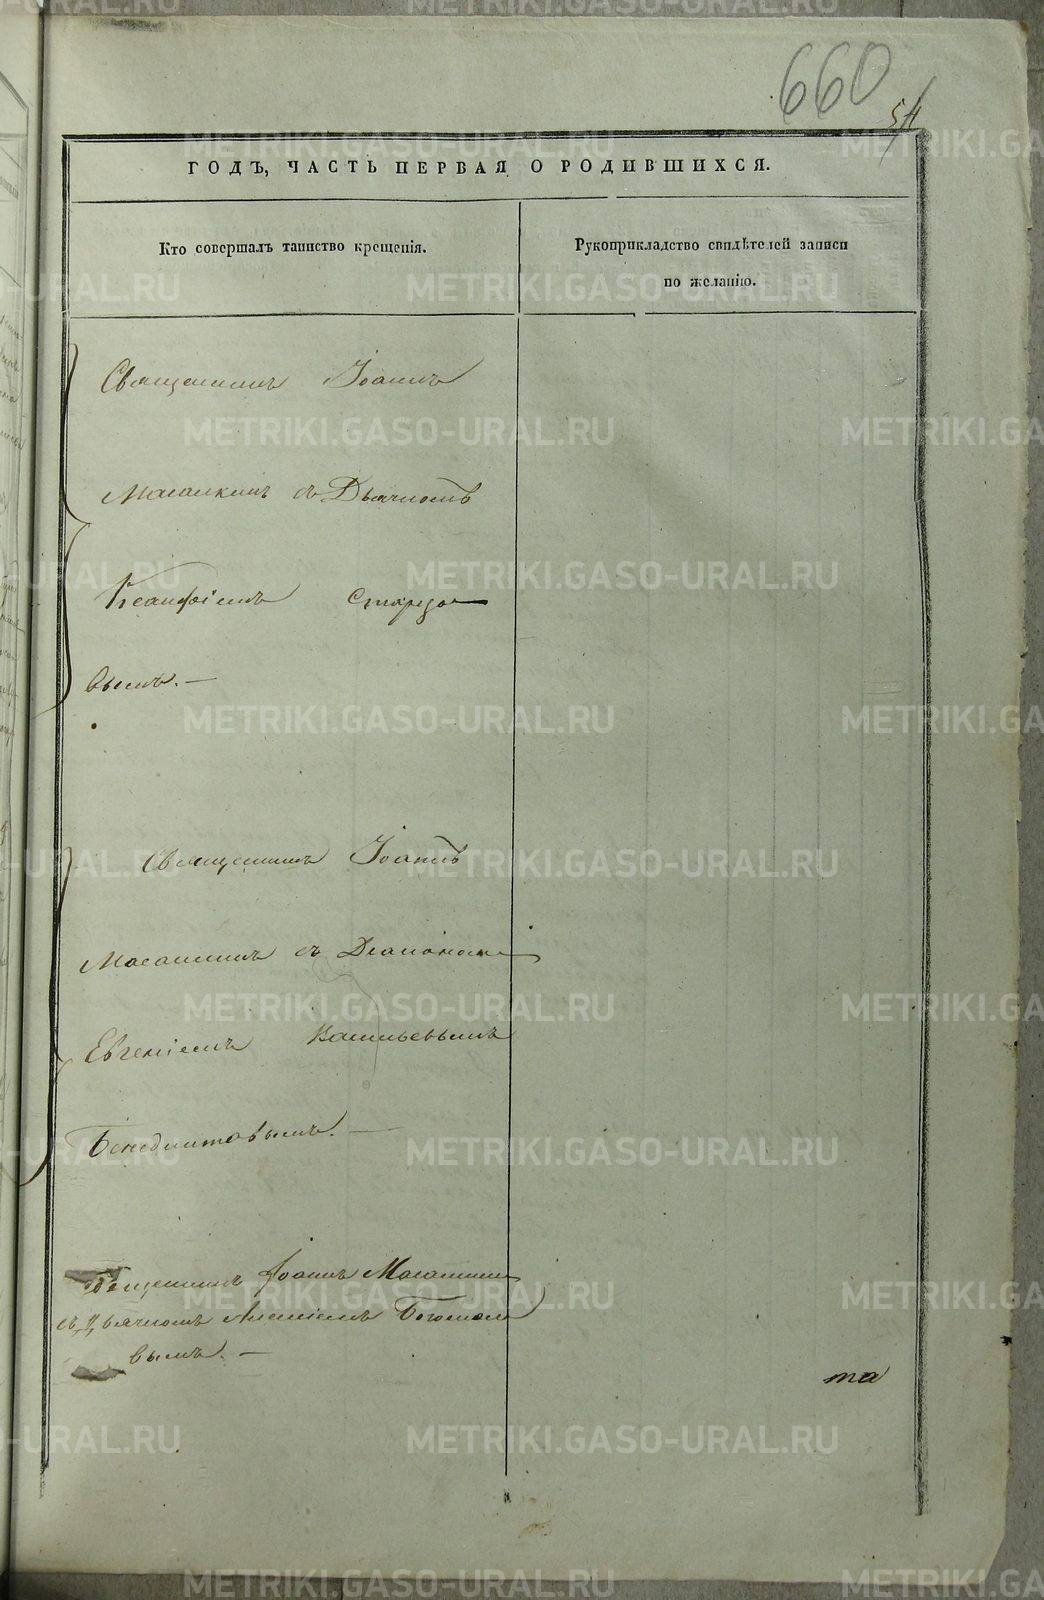 660
54
ГОДЪ, ЧАСТЬ ПЕРВАЯ О РОДИВШИХСЯ.
Кто совершалъ таинство крещенія.
Рукоприкладство свидѣтелей записи
по желанію.
Священникъ Іоаннъ
съ Дьячкомъ
Ксанфіемъ
вымъ. —
Священникъ Іоаннъ
съ Діакономъ
Евгеніемъ Васильевымъ
Бенедиктовымъ. —
Священникъ Іоаннъ
съ Дьячкомъ Алексіемъ Богомоло
вымъ. —
та
METRIKI.GASO-URAL.RU